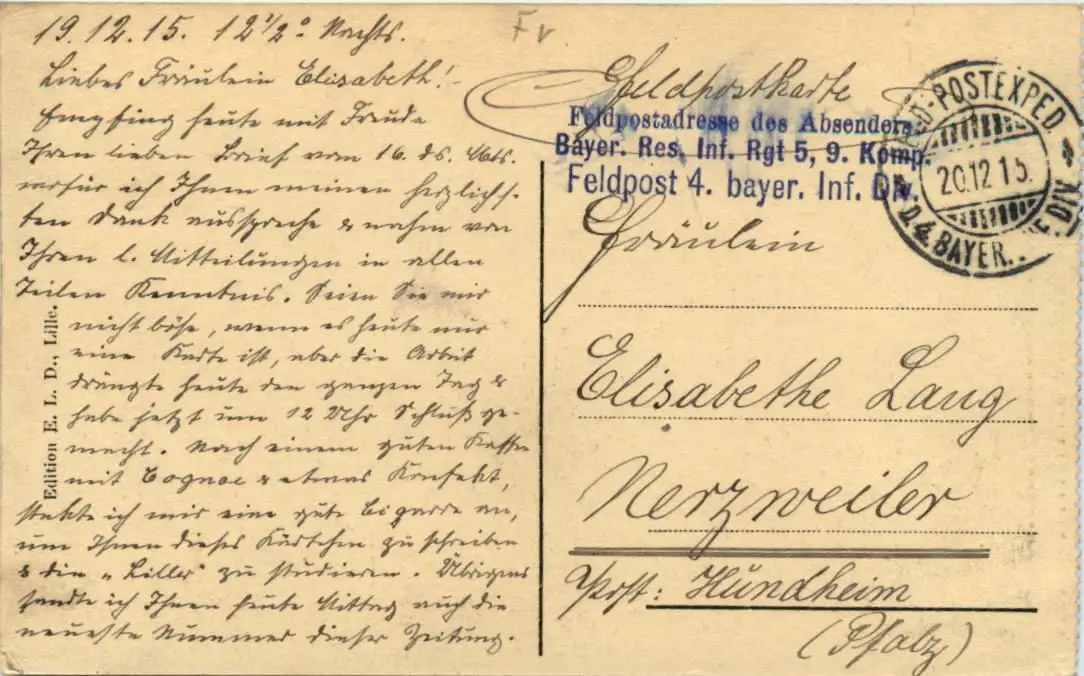 19.12.15. 12 1/2° Nachts.
Liebes Fräulein Elisabeth!
Empfing heute mit Freude
Ihren lieben Brief vom 16. ds. Mts.
wofür ich Ihnen meinen herzlichs-
ten Dank ausspreche & nahm von
Ihren l. Mitteilungen in allen
Teilen Kenntnis. Seien Sie mir
nicht böse, wenn es heute nur
eine Karte ist, aber die Arbeit
drängte heute den ganzen Tag &
habe jetzt um 12 Uhr Schluß ge-
macht. Nach einem guten Kaffee
mit Cognac & etwas Konfekt,
steckte ich mir eine gute Cigarre an,
um Ihnen dieses Kärtchen zu schreiben
& die "Liller" zu studieren. Übrigens
sandte ich Ihnen heute Mittag auch die
neueste Nummer dieser Zeitung.
Edition E. L. D., Lille.
Feldpostkarte
Feldpostadresse des Absenders
Bayer. Res. Inf. Rgt 5, 9. Komp.
Feldpost 4. bayer. Inf. Div.
FELD-POSTEXPED.
20.12.15.
D. 4. BAYER. DIV.
Fräulein
Elisabethe Lang
Nerzweiler
Post: Hundheim
(Pfalz)